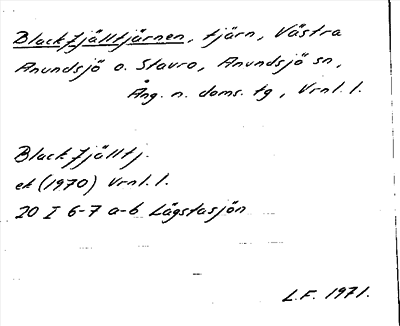 Blackfjälltjärnen, tjärn, Västra
Anundsjö o. Stavro, Anundsjö sn,
Ång. n. doms. tg, Vrnl. l.
Blackfjälltj.
ek (1970) Vrnl. l.
20 I 6-7 a-b Lägstasjön
L.F. 1971.